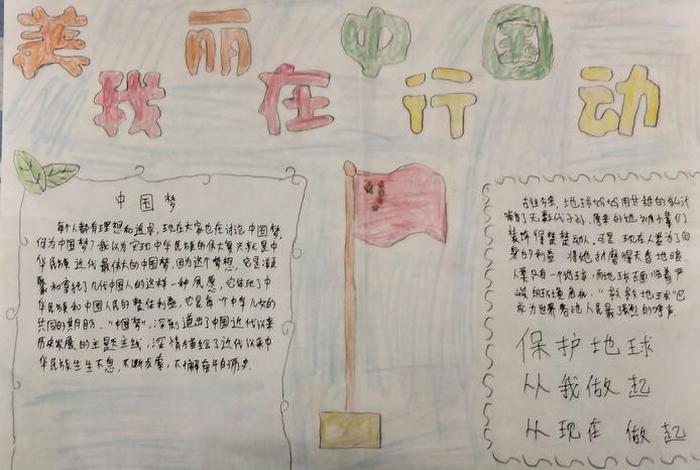 美丽中国
我在行动
中国梦
每个人都有理想和追求,现在大家也在讨论中国梦,
何为中国梦?我以为实现中华民族的伟大复兴就是中
华民族近代最伟大的中国梦,因为这个梦想,它是凝
聚和寄托了几代中国人的这样一种夙愿,它体现了中
华民族和中国人民的整体利益,它是每个中华儿女的
共同的期盼。"中国梦",深刻道出了中国近代以来
历史发展的主题主线,深情描绘了近代以来中
华民族生生不息、不断求索、不懈奋斗的历史.
古往今来,地球妈妈用甘甜的乳汁
哺育了无数代子孙。原来的地球被小辈们
装饰得楚楚动人。可是,现在人类为了自
身的利益,将她折磨得天昏地暗。
人类只有一个地球;而地球正面临着严
峻的环境危机。"救救地球"已
成为世界各论人民最强烈的呼声.
保护地球
从我做起
从现在 做起